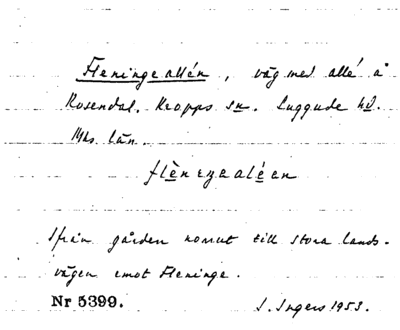 Fleningeallén, väg med allé å
Rosendal. Kropps sn. Luggude hd.
Mhs län.
flèneŋaaléen
Ifrån gården norrut till stora lands-
vägen emot Fleninge.
Nr 5399.
I. Ingers 1953.